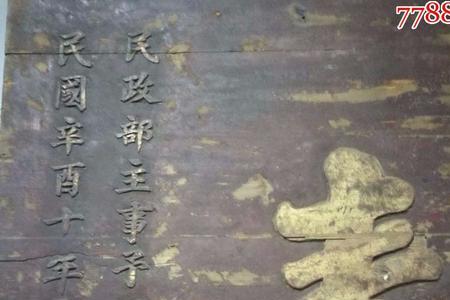 7788
民政部主事予
民國辛酉十年